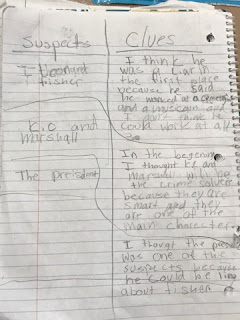 Suspects
I thought
fisher
K.C and
Marshall
The preisdent
Clues
I think he
was a liar in
the first place
because he said
he worked at a
and a
I don't think he
could work at all
In the begening
I thought KC and
Marshall will be
the crime solvers
because they are
smart and they
are one of the
main charecters
I thougt the pres
was one of the
suspects because
he could be lieing
about fisher